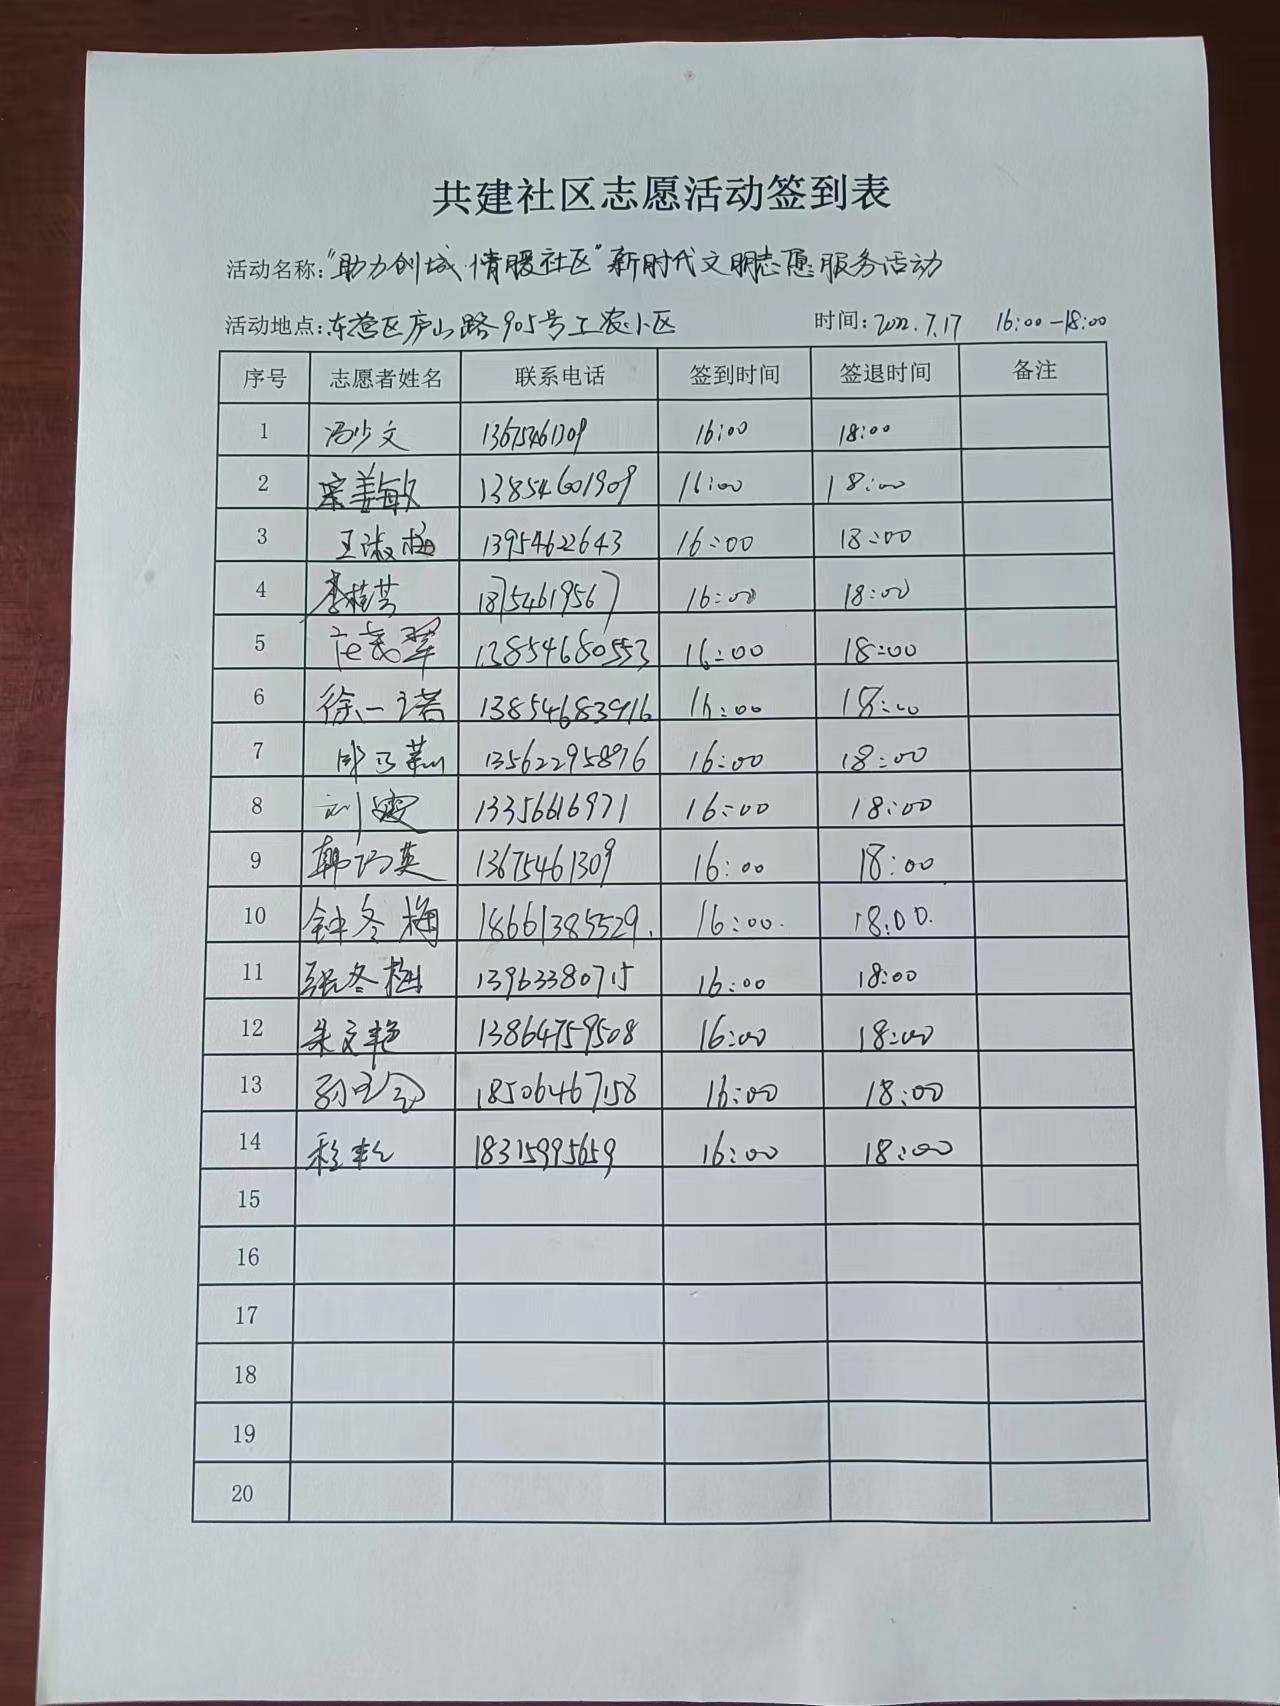 共建社区志愿活动签到表
活动名称:“助力创城 情暖社区”新时代文明志愿服务活动
活动地点:东营区庐山路905号工农小区 时间:2022.7.17 16:00-18:00
序号 志愿者姓名 联系电话 签到时间 签退时间 备注
1 冯少文 13675461309 16:00 18:00
2 宗姜敏 13854601909 16:00 18:00
3 王淑梅 13954622643 16:00 18:00
4 李桂芸 18754619567 16:00 18:00
5 13854680553 16:00 18:00
6 徐一诺 13854683916 16:00 18:00
7 13562295896 16:00 18:00
8 刘雯 13356616971 16:00 18:00
9 韩巧英 13675461309 16:00 18:00
10 钟冬梅 18661385529. 16:00. 18:00.
11 张冬梅 13963380715 16:00 18:00
12 朱文艳 13864759508 16:00 18:00
13 18506467158 16:00 18:00
14 程乾 18315995659 16:00 18:00
15
16
17
18
19
20